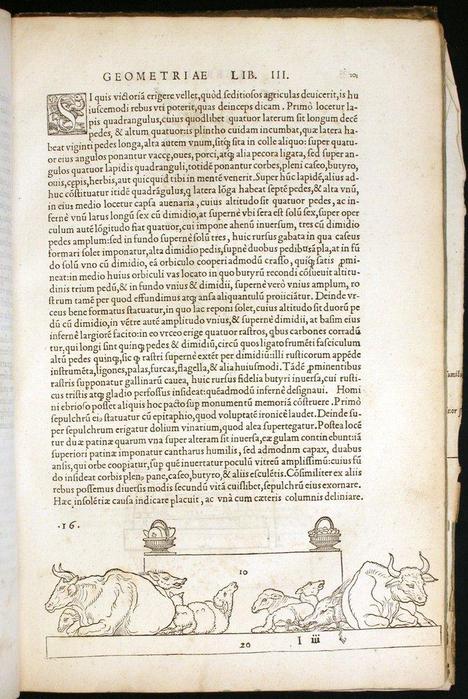 GEOMETRIAE LIB. III.
SI quis victoriā erigere vellet, quòd seditiosos agricolas deuicerit, is hu
iuscemodi rebus vti poterit, quas deinceps dicam. Primò locetur la-
pis quadrangulus, cuius quodlibet quatuor laterum sit longum decē
pedes, & altum quatuor: is plintho cuidam incumbat, quæ latera ha-
beat viginti pedes longa, alta autem vnum, sitq; sita in colle aliquo: super quatu-
or eius angulos ponantur vaccę, oues, porci, atq; alia pecora ligata, sed super an-
gulos quatuor lapidis quadranguli, totidē ponantur corbes, pleni caseo, butyro,
ouis, cępis, herbis, aut quicquid tibi in mentē venerit. Super hūc lapidē, alius ad-
huc cōstituatur itidē quadrāgulus, q latera lōga habeat septē pedes, & alta vnū,
in eius medio locetur capsa auenaria, cuius altitudo sit quatuor pedes, ac in-
fernè vnū latus longū sex cū dimidio, at supernè vbi sera est solū sex, super oper
culum autē lōgitudo fiat quatuor, cui impone ahenū inuersum, tres cū dimidio
pedes amplum: sed in fundo supernè solū tres, huic rursus gabata in qua caseus
formari solet imponatur, alta dimidio pedis, supnè duobus pedibus ēt pla, at in fū
do solū vno cū dimidio, eā orbiculo cooperi admodū crasso, quiq; satis pmi-
neat: in medio huius orbiculi vas locato in quo butyrū recondi cōsueuit altitu-
dinis trium pedū, & in fundo vnius & dimidii, supernè verò vnius amplum, ro
strum tamē per quod effundimus atq; ansa aliquantulū proiiciātur. Deinde vr-
ceus bene formatus statuatur, in quo lac reponi solet, cuius altitudo sit duorū pe
dū cū dimidio, in vētre autē amplitudo vnius, & supernè dimidii, at basim eius
infernè largiorē facito: in eo vrceo erige quatuor rastros, qbus carbones corradū
tur, qui longi sint quinq; pedes & dimidiū, circū quos ligato frumēti fasciculum
altū pedes quinq;, sic q; rastri supernè extēt per dimidiū: illi rusticorum appēde
instrumēta, ligones, palas, furcas, flagella, & alia huiusmodi. Tādē prominentibus
rastris supponatur gallinarū cauea, huic rursus fidelia butyri inuersa, cui rusti-
cus tristis atq; gladio perfossus insideat: quēadmodū infernè designaui. Homi
ni ebrioso posset aliquis hoc pacto sup monumentū memoriā cōstruere. Primò
sepulchrū ei statuatur cū epitaphio, quod voluptatē ironicè laudet. Deinde su-
per sepulchrum erigatur dolium vinarium, quod alea supertegatur. Postea locē
tur duæ patinæ quarum vna super alteram sit inuersa, eæ gulam continebunt: iā
superiori patinæ imponatur cantharus humilis, sed admodum capax, duabus
ansis, qui orbe coopiatur, sup quē inuertatur poculū vitreū amplissimū: cuius fū
do insideat corbis plenꝰ pane, caseo, butyro, & aliis esculētis. Cōsimiliter ex aliis
rebus possemus diuersis modis secundū vitā cuiuslibet, sepulchrū eius exornare.
Hæc insolētiæ causa indicare placuit, ac vnà cum cæteris columnis deliniare.
.16.
10
20
I iii